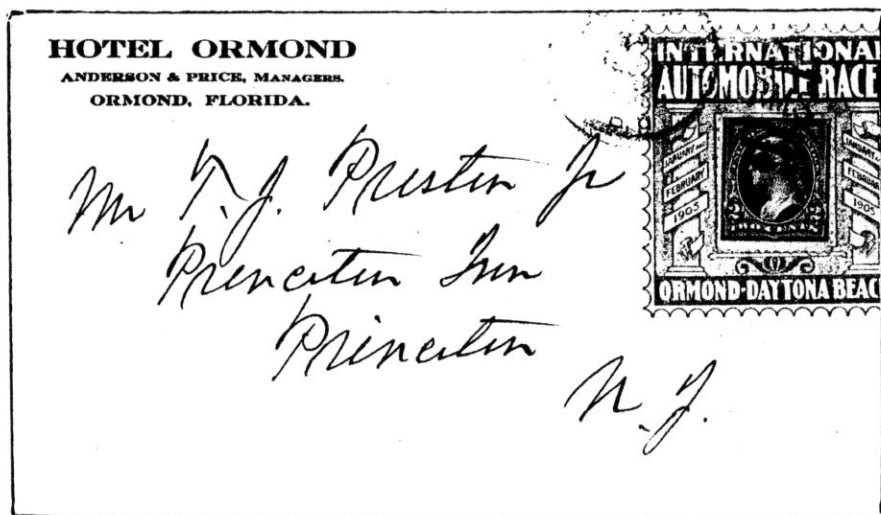 HOTEL ORMOND
ANDERSON & PRICE, MANAGERS.
ORMOND, FLORIDA.
INTERNATIONAL
AUTOMOBILE RACE
JANUARY
FEBRUARY
1905
JANUARY
FEBRUAR
1905
2 2
TWO CENTS
ORMOND-DAYTONA BEACH
Mr T. J. Preston Jr
Princeton Inn
Princeton
N. J.